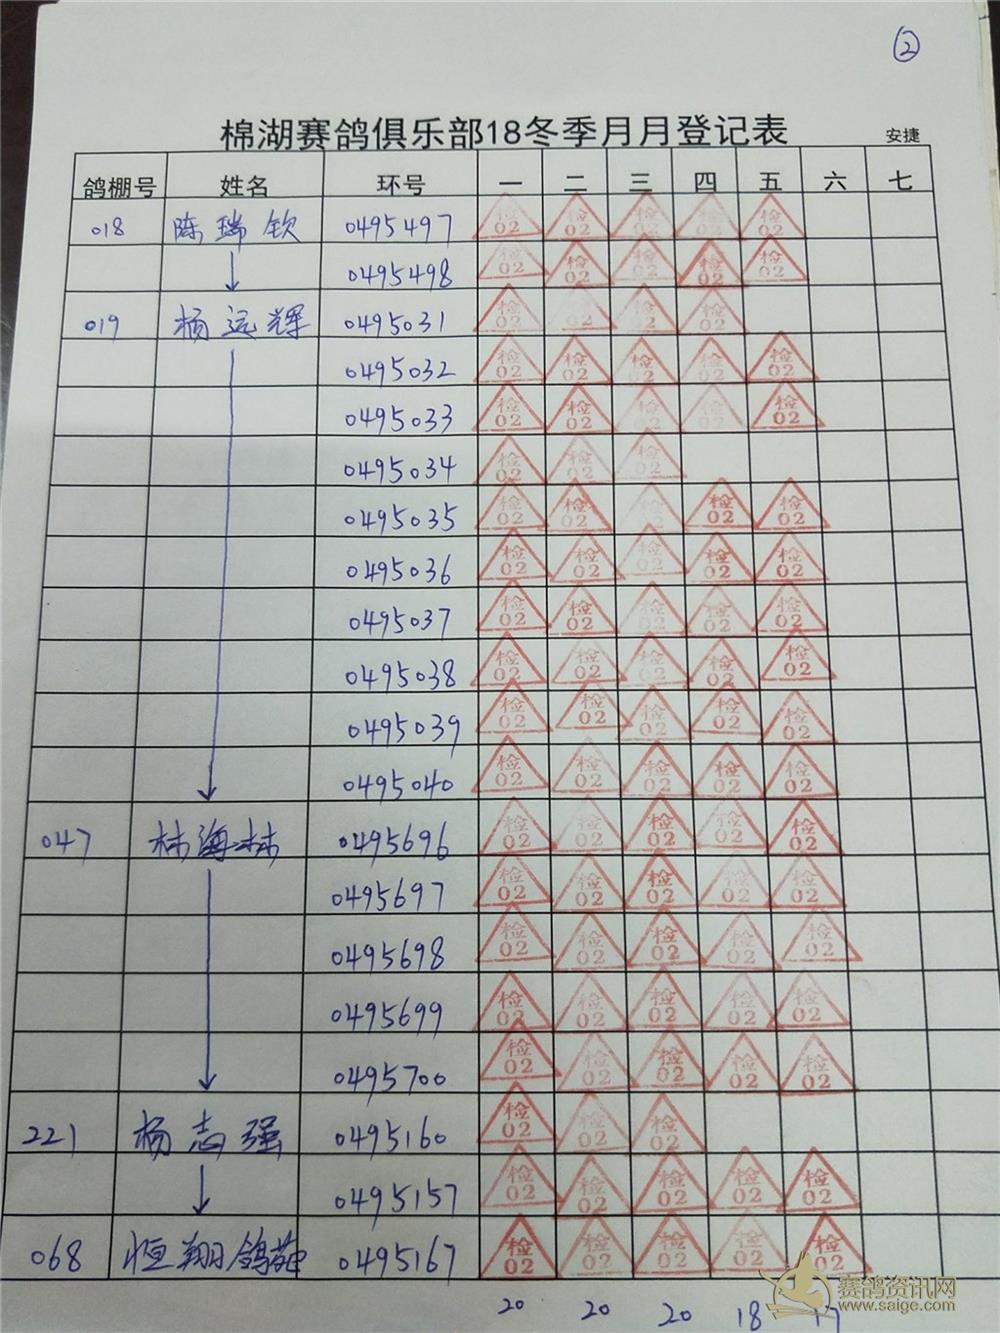 ②
棉湖赛鸽俱乐部18冬季月月登记表 安捷
鸽棚号 姓名 环号 一 二 三 四 五 六 七
018 陈瑞钦 0495497 检02 检02 检02 检02 检02
↓ 0495498 检02 检02 检02 检02 检02
019 杨远辉 0495031 检02 检02 检02 检02
0495032 检02 检02 检02 检02 检02
0495033 检02 检02 检02 检02 检02
0495034 检02 检02 检02
0495035 检02 检02 检02 检02 检02
0495036 检02 检02 检02 检02 检02
0495037 检02 检02 检02 检02 检02
0495038 检02 检02 检02 检02 检02
0495039 检02 检02 检02 检02 检02
↓ 0495040 检02 检02 检02 检02 检02
047 林海林 0495696 检02 检02 检02 检02 检02
0495697 检02 检02 检02 检02 检02
0495698 检02 检02 检02 检02 检02
0495699 检02 检02 检02 检02 检02
↓ 0495700 检02 检02 检02 检02 检02
221 杨志强 0495160 检02 检02 检02
↓ 0495157 检02 检02 检02 检02 检02
068 恒翔鸽苑 0495167 检02 检02 检02 检02 检02
20 20 20 18 17
赛鸽资讯网
www.saige.com